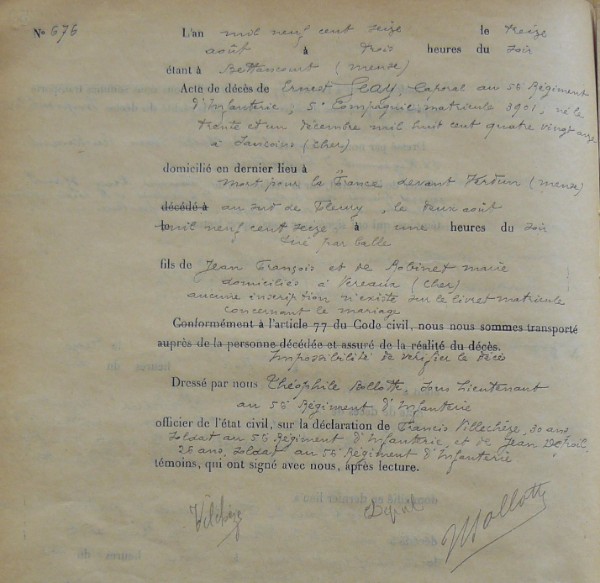 Nº 676
L'an mil neuf cent seize le treize
août à trois heures du soir
étant à Bettancourt (Meuse)
Acte de décès de Ernest Caporal au 56 Régiment
d'Infanterie, 5e Compagnie matricule 3901, né le
trente et un décembre mil huit cent quatre vingt onze
à Sancoins (Cher)
domicilié en dernier lieu à
mort pour la France devant Verdun (Meuse)
décédé à au de Fleury, le deux août
le mil neuf cent seize à une heures du soir
Tué par balle
fils de Jean François et de Robinet Marie
domiciliés à Vereaux (Cher)
aucune inscription n'existe sur le livret matricule
concernant le mariage
Conformément à l'article 77 du Code civil, nous nous sommes transporté
auprès de la personne décédée et assuré de la réalité du décès.
Impossibilité de vérifier le décès
Dressé par nous Théophile sous Lieutenant
au 56 Régiment d'Infanterie
officier de l'état civil, sur la déclaration de Francis Villechèze, 30 ans
soldat au 56 Régiment d'Infanterie, et de Jean
26 ans, soldat au 56 Régiment d'Infanterie
témoins, qui ont signé avec nous, après lecture.